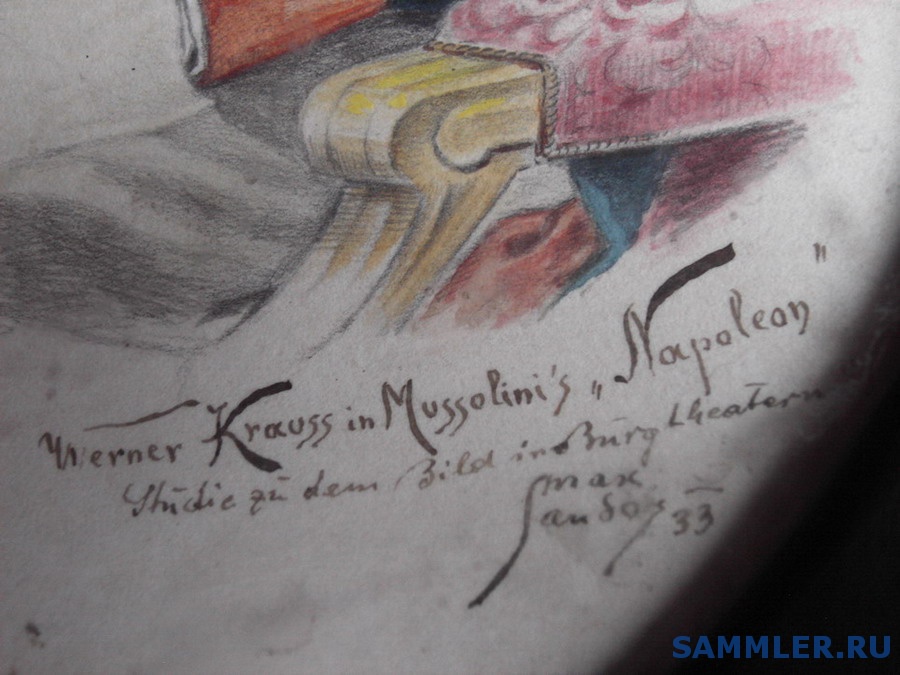 Werner Krauss in Mussolini's „Napoleon"
Studie zu dem Bild in Burgtheater
max
33
SAMMLER.RU